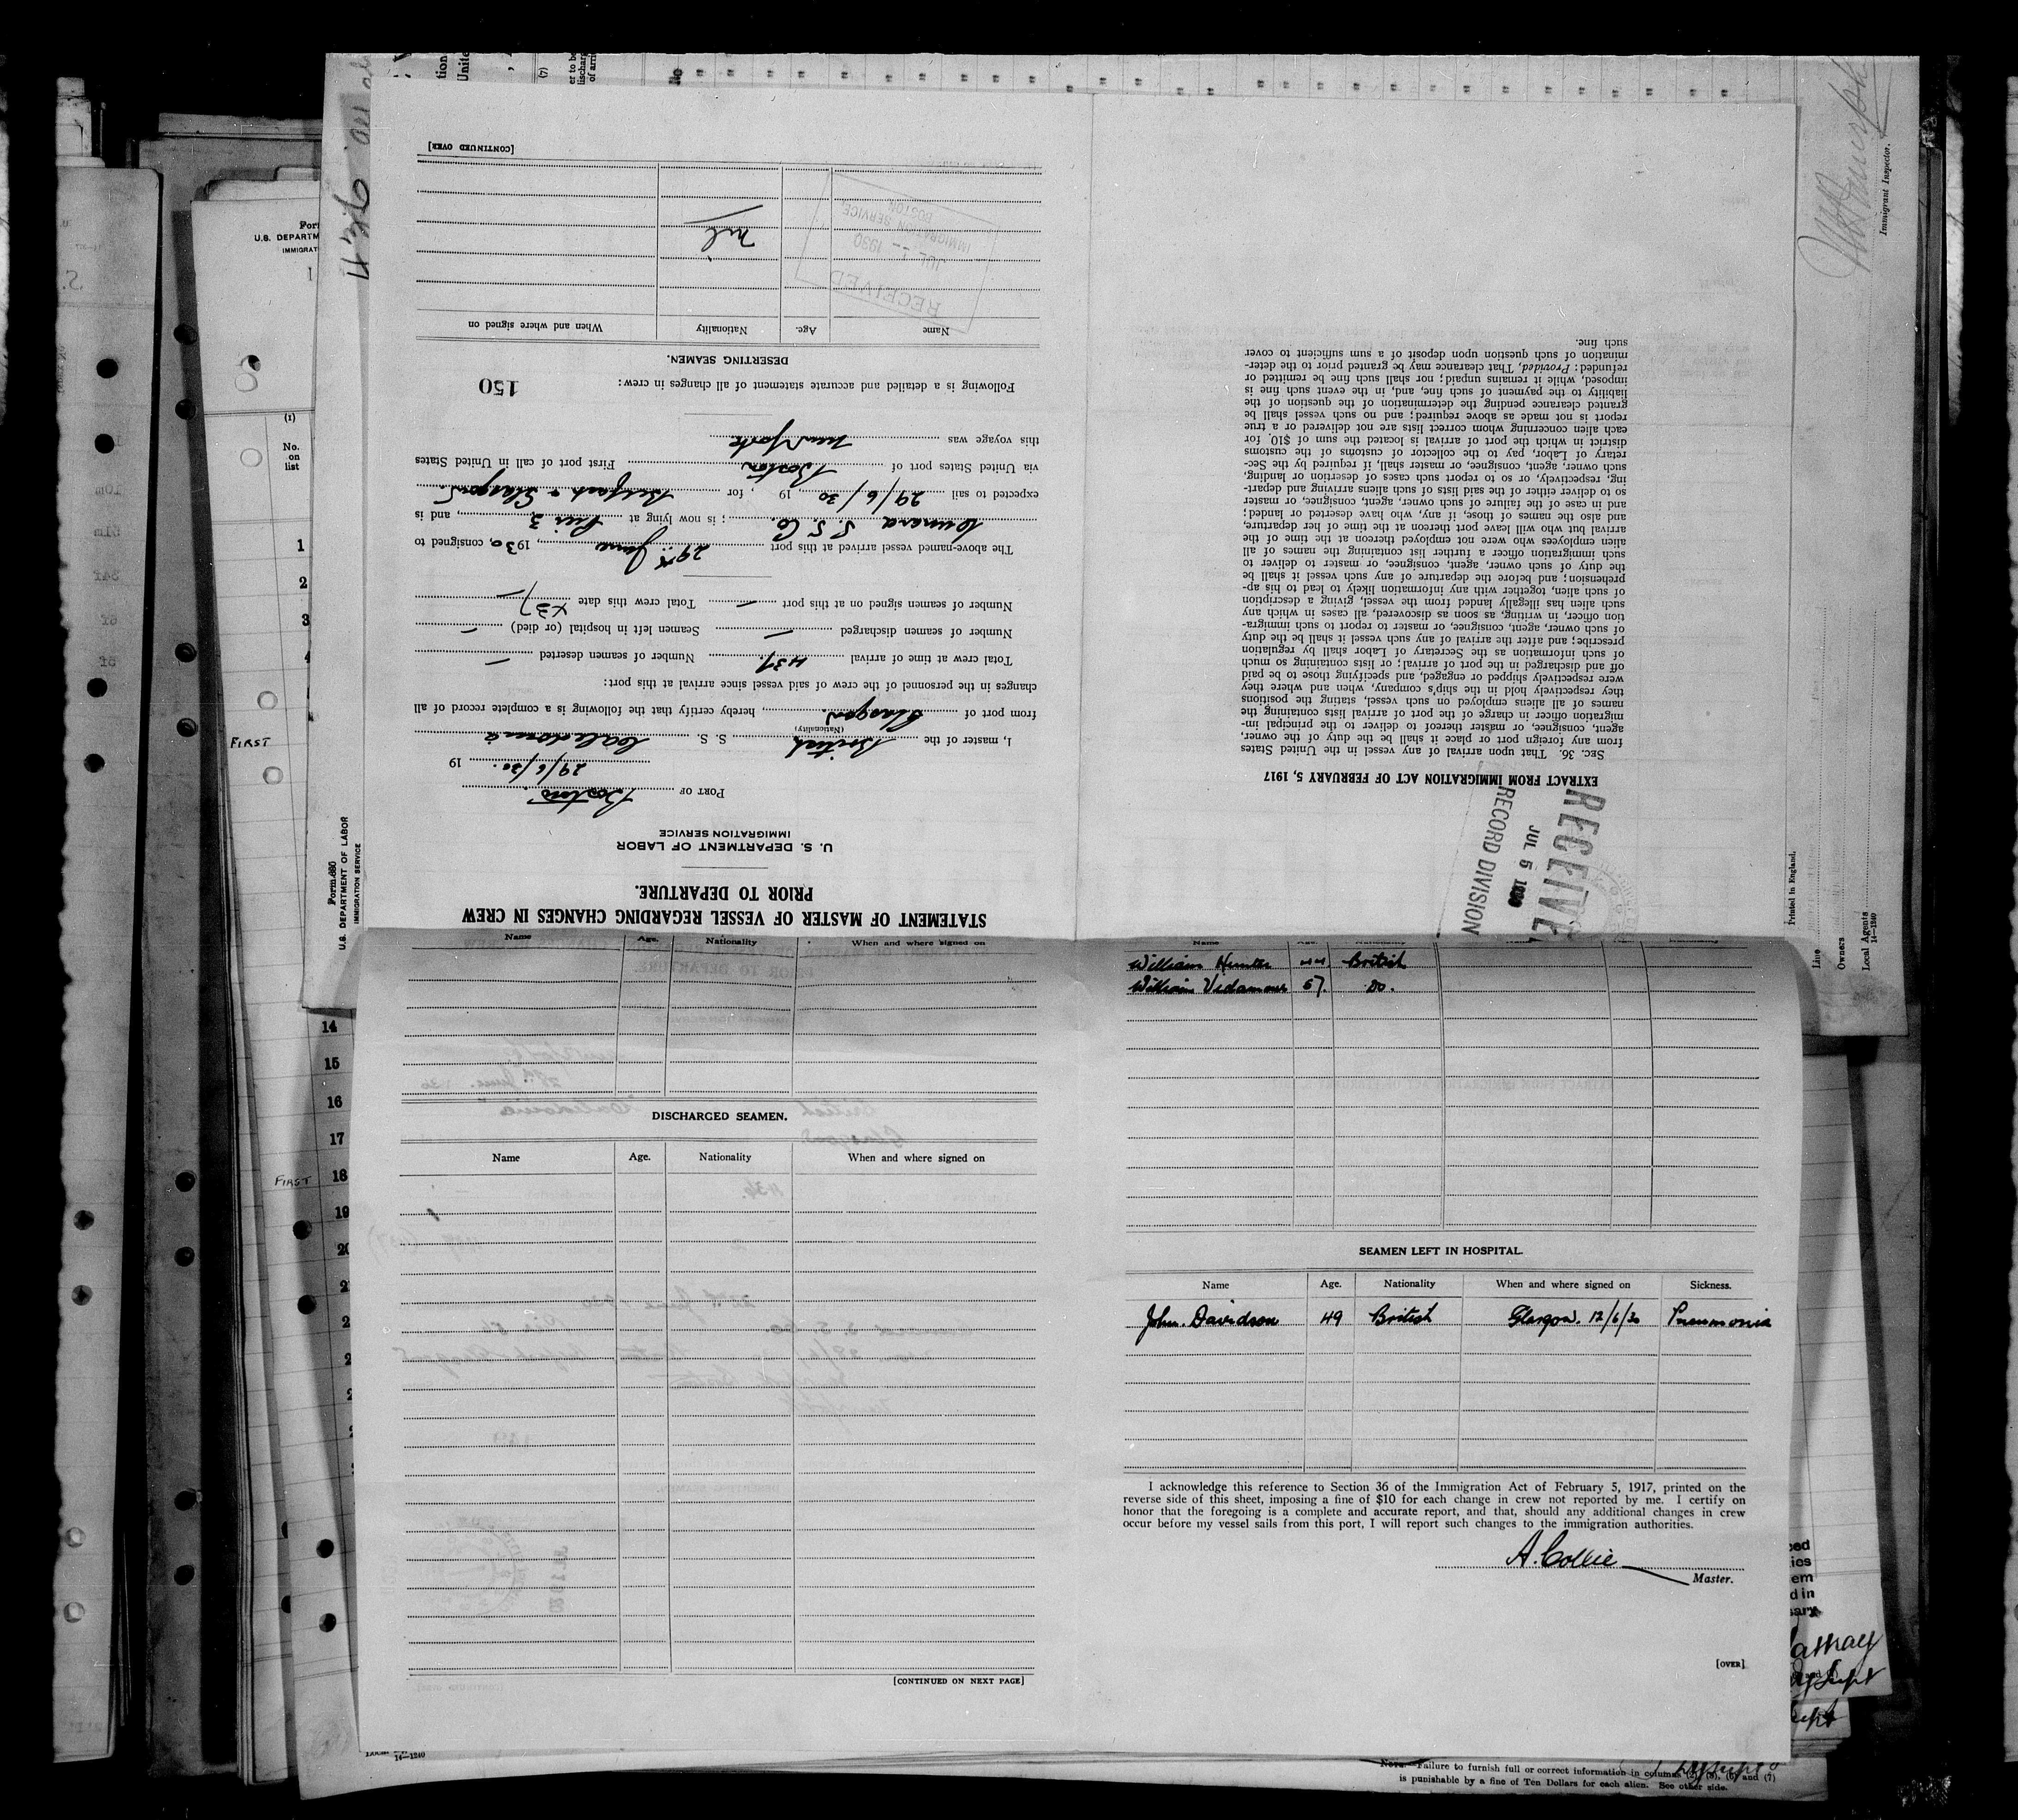 STATEMENT OF MASTER OF VESSEL REGARDING CHANGES IN CREW
PRIOR TO DEPARTURE.
U. S. DEPARTMENT OF LABOR
IMMIGRATION SERVICE
PORT OF Boston.
29/6/30. 19
I, master of the British S. S. Caledonia
(Nationality)
from port of Glasgow, hereby certify that the following is a complete record of all
changes in the personnel of the crew of said vessel since arrival at this port:
Total crew at time of arrival 437. Number of seamen deserted —
Number of seamen discharged — Seamen left in hospital (or died) —
Number of seamen signed on at this port — Total crew this date
The above-named vessel arrived at this port 29th June, 1930, consigned to
Cunard S. S. Co.; is now lying at Pier 3, and is
expected to sail 29/6/30, 19 , for Belfast & Glasgow.
via United States port of Boston First port of call in United States
this voyage was New York
Following is a detailed and accurate statement of all changes in crew:
150
DESERTING SEAMEN.
Name Age. Nationality When and where signed on
nil
RECEIVED
JUL 1 - 1930
IMMIGRATION SERVICE
BOSTON
[CONTINUED OVER]
EXTRACT FROM IMMIGRATION ACT OF FEBRUARY 5, 1917
SEC. 36. That upon arrival of any vessel in the United States
from any foreign port or place it shall be the duty of the owner,
agent, consignee, or master thereof to deliver to the principal im-
migration officer in charge of the port of arrival lists containing the
names of all aliens employed on such vessel, stating the positions
they respectively hold in the ship's company, when and where they
were respectively shipped or engaged, and specifying those to be paid
off and discharged in the port of arrival; or lists containing so much
of such information as the Secretary of Labor shall by regulation
prescribe; and after the arrival of any such vessel it shall be the duty
of such owner, agent, consignee, or master to report to such immigra-
tion officer, in writing, as soon as discovered, all cases in which any
such alien has illegally landed from the vessel, giving a description
of such alien, together with any information likely to lead to his ap-
prehension; and before the departure of any such vessel it shall be
the duty of such owner, agent, consignee, or master to deliver to
such immigration officer a further list containing the names of all
alien employees who were not employed thereon at the time of the
arrival but who will leave port thereon at the time of her departure,
and also the names of those, if any, who have deserted or landed;
and in case of the failure of such owner, agent, consignee, or master
so to deliver either of the said lists of such aliens arriving and depart-
ing, respectively, or so to report such cases of desertion or landing,
such owner, agent, consignee, or master, shall, if required by the Sec-
retary of Labor, pay to the collector of customs of the customs
district in which the port of arrival is located the sum of $10 for
each alien concerning whom correct lists are not delivered or a true
report is not made as above required; and no such vessel shall be
granted clearance pending the determination of the question of the
liability to the payment of such fine, and, in the event such fine is
imposed, while it remains unpaid; nor shall such fine be remitted or
refunded: Provided, That clearance may be granted prior to the deter-
mination of such question upon deposit of a sum sufficient to cover
such fine.
RECEIVE
JUL 5
RECORD DIVISION
Name Age. Nationality When and where signed on
DISCHARGED SEAMEN.
Name Age. Nationality When and where signed on
[CONTINUED ON NEXT PAGE]
William Hunter 44 British
William Vidamour 57. Do.
SEAMEN LEFT IN HOSPITAL.
Name Age. Nationality When and where signed on Sickness.
John Davidson 49 British Glasgow. 12/6/30 Pneumonia
I acknowledge this reference to Section 36 of the Immigration Act of February 5, 1917, printed on the
reverse side of this sheet, imposing a fine of $10 for each change in crew not reported by me. I certify on
honor that the foregoing is a complete and accurate report, and that, should any additional changes in crew
occur before my vessel sails from this port, I will report such changes to the immigration authorities.
A. Collie
Master.
[OVER]
Form 680
U.S. DEPARTMENT OF LABOR
IMMIGRATION SERVICE
U.S. DEPARTM
IMMIGRAT
(1)
No.
on
list
1
2
3
4
FIRST
14
15
16
17
FIRST 18
19
14—1240
Immigrant Inspector.
Printed in England.
Line
Owners
Local Agents
14—1240
NOTE.—Failure to furnish full or correct information in columns (2), (5), (6) and (7)
is punishable by a fine of Ten Dollars for each alien. See other side.